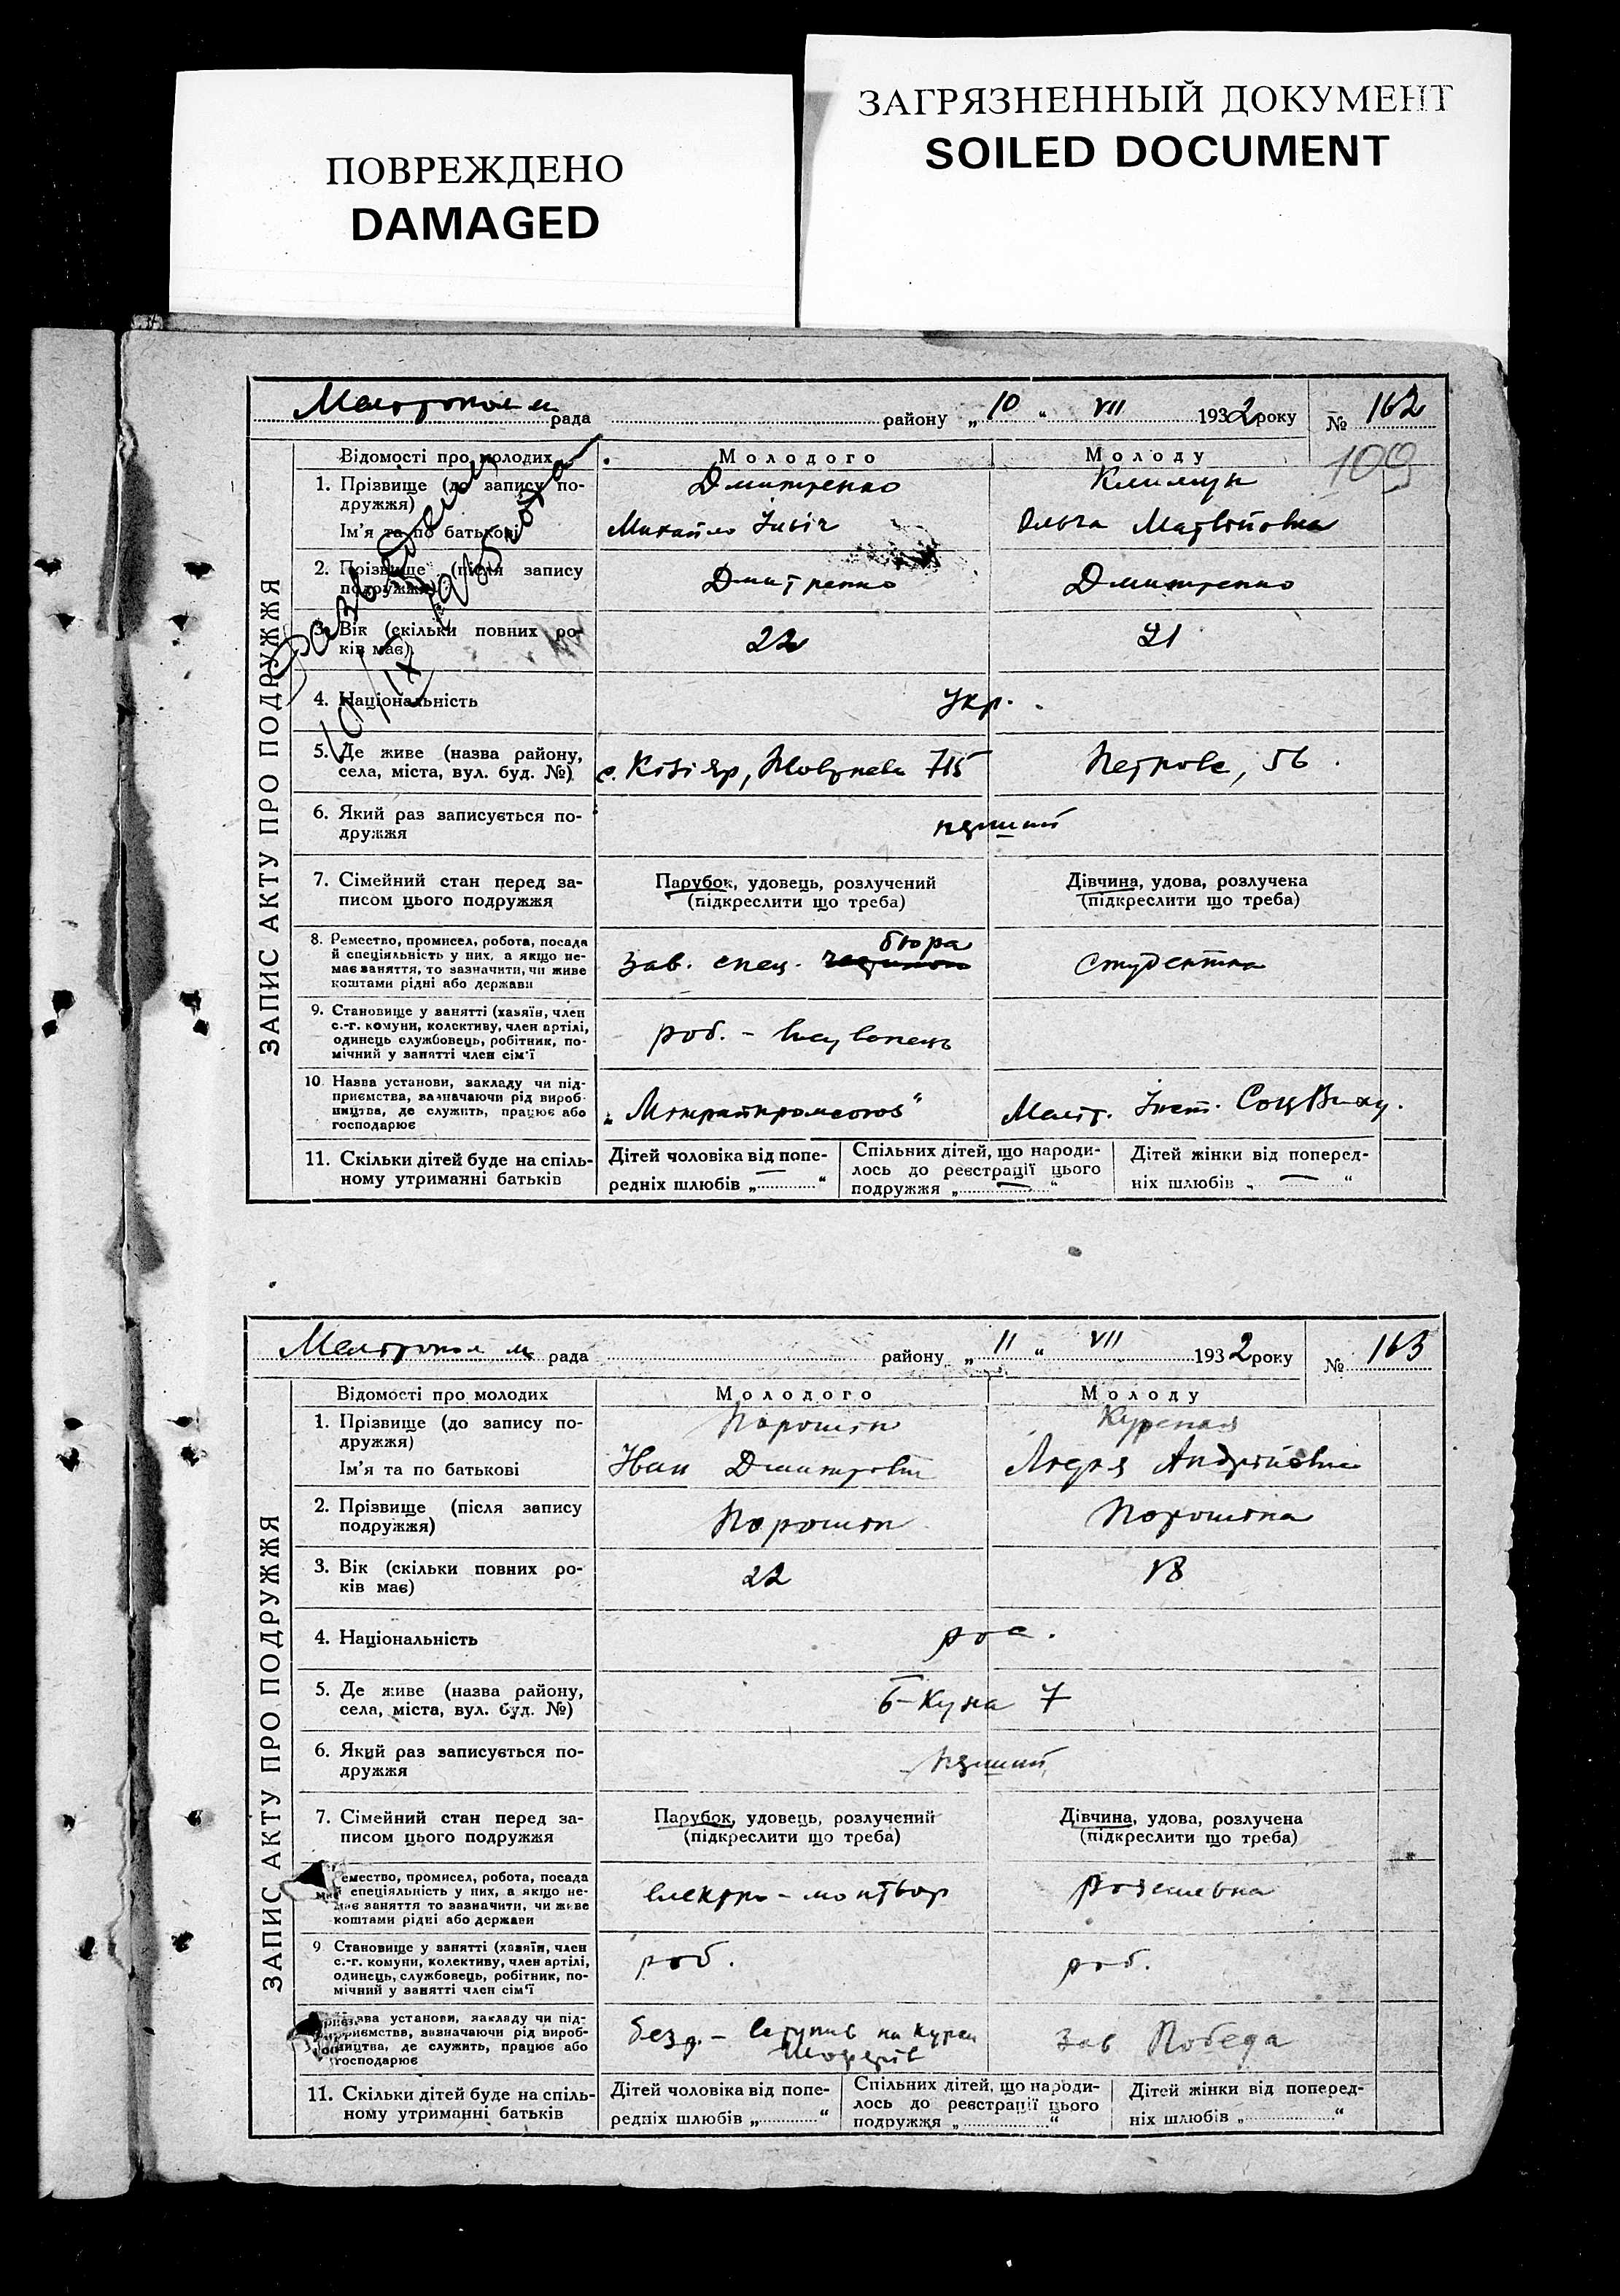 ПОВРЕЖДЕНО
DAMAGED
ЗАГРЯЗНЕННЫЙ ДОКУМЕНТ
SOILED DOCUMENT
рада району „10“ VII 1932 року № 162
109
ЗАПИС АКТУ ПРО ПОДРУЖЖЯ
Відомості про молодих Молодого Молоду
1. Прізвище (до запису по-
дружжя)
Дмитренко Климчук
Ім'я та по батькові
Михайло Ольга Матвіївна
2. Прізвище (після запису
подружжя)
Дмитренко Дмитренко
3. Вік (скільки повних ро-
ків має)
22 21
4. Національність укр.
5. Де живе (назва району,
села, міста, вул. буд. №)
715 Петрова, 56
6. Який раз записується по-
дружжя
перший
7. Сімейний стан перед за-
писом цього подружжя
Парубок, удовець, розлучений
(підкреслити що треба)
Дівчина, удова, розлучека
(підкреслити що треба)
8. Ремество, промисел, робота, посада
й спеціяльність у них, а якщо не-
має заняття, то зазначити, чи живе
коштами рідні або держави
зав. спец. бюра
студентка
9. Становище у занятті (хазяїн, член
с.-г. комуни, колективу, член артілі,
одинець службовець, робітник, по-
мічний у занятті член сім'ї
роб. –
10. Назва установи, закладу чи під-
приємства, зазначаючи рід вироб-
ництва, де служить, працює або
господарює
Меліт. Інст. СоцВих.
11. Скільки дітей буде на спіль-
ному утриманні батьків
Дітей чоловіка від попе-
редніх шлюбів „ — “
Спільних дітей, що народи-
лось до реєстрації цього
подружжя „ — “
Дітей жінки від поперед-
ніх шлюбів „ — “
рада району „11“ VII 1932 року № 163
ЗАПИС АКТУ ПРО ПОДРУЖЖЯ
Відомості про молодих Молодого Молоду
1. Прізвище (до запису по-
дружжя)
Порошін
Ім'я та по батькові
Іван Дмитрович Андріївна
2. Прізвище (після запису
подружжя)
Порошін Порошіна
3. Вік (скільки повних ро-
ків має)
22 18
4. Національність рос.
5. Де живе (назва району,
села, міста, вул. буд. №)
Б-Куна 7
6. Який раз записується по-
дружжя
перший
7. Сімейний стан перед за-
писом цього подружжя
Парубок, удовець, розлучений
(підкреслити що треба)
Дівчина, удова, розлучена
(підкреслити що треба)
емество, промисел, робота, посада
спеціяльність у них, а якщо не-
має заняття то зазначити, чи живе
коштами рідні або держави
електро-монтьор
9. Становище у занятті (хазяїн, член
с.-г. комуни, колективу, член артілі,
одинець, службовець, робітник, по-
мічний у занятті член сім'ї
роб. роб.
зва установи, закладу чи під-
приємства, зазначаючи рід вироб-
ництва, де служить, працює або
господарює
безр. – вступив на курси
зав Победа
11. Скільки дітей буде на спіль-
ному утриманні батьків
Дітей чоловіка від попе-
редніх шлюбів „ “
Спільних дітей, що народи-
лось до реєстрації цього
подружжя „ “
Дітей жінки від поперед-
ніх шлюбів „ “